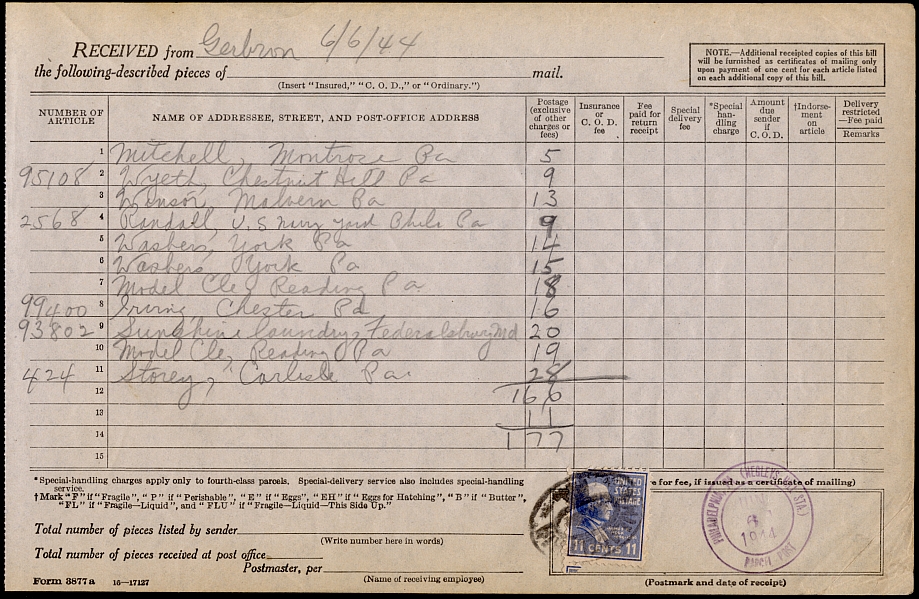 RECEIVED from Gerbron 6/6/44
the following-described pieces of mail.
(Insert "Insured," "C. O. D.," or "Ordinary.")
NOTE.—Additional receipted copies of this bill
will be furnished as certificates of mailing only
upon payment of one cent for each article listed
on each additional copy of this bill.
NUMBER OF ARTICLE NAME OF ADDRESSEE, STREET, AND POST-OFFICE ADDRESS Postage (exclusive of other charges or fees) Insurance or C. O. D. fee Fee paid for return receipt Special delivery fee *Special handling charge Amount due sender if C. O. D. †Indorsement on article Delivery restricted—Fee paid Remarks
1 Mitchell, Montrose Pa 5
95108 2 Wyeth, Chestnut Hill Pa 9
3 Winsor, Malvern Pa 13
2568 4 Randall U.S Navy Yard Phila Pa 9
5 Washers, York Pa 14
6 Washers, York Pa 15
7 Model Cle, Reading Pa 18
99400 8 Irving, Chester Pa 16
93802 9 Sunshine laundry, Federalsburg Md 20
10 Model Cle, Reading Pa 19
424 11 Storey, Carlisle Pa. 28
12 166
13 11
14 177
15
*Special-handling charges apply only to fourth-class parcels. Special-delivery service also includes special-handling
service.
†Mark "F" if "Fragile", "P" if "Perishable", "E" if "Eggs", "EH" if "Eggs for Hatching", "B" if "Butter",
"FL" if "Fragile—Liquid", and "FLU" if "Fragile—Liquid—This Side Up."
Total number of pieces listed by sender
(Write number here in words)
Total number of pieces received at post office
Postmaster, per
(Name of receiving employee)
Form 3877a 16—17127
for fee, if issued as a certificate of mailing)
UNITED
STATES
POSTAGE
11 CENTS 11
PHILADELPHIA (NEGLEYS STA.)
6
1944
PARCEL POST
(Postmark and date of receipt)